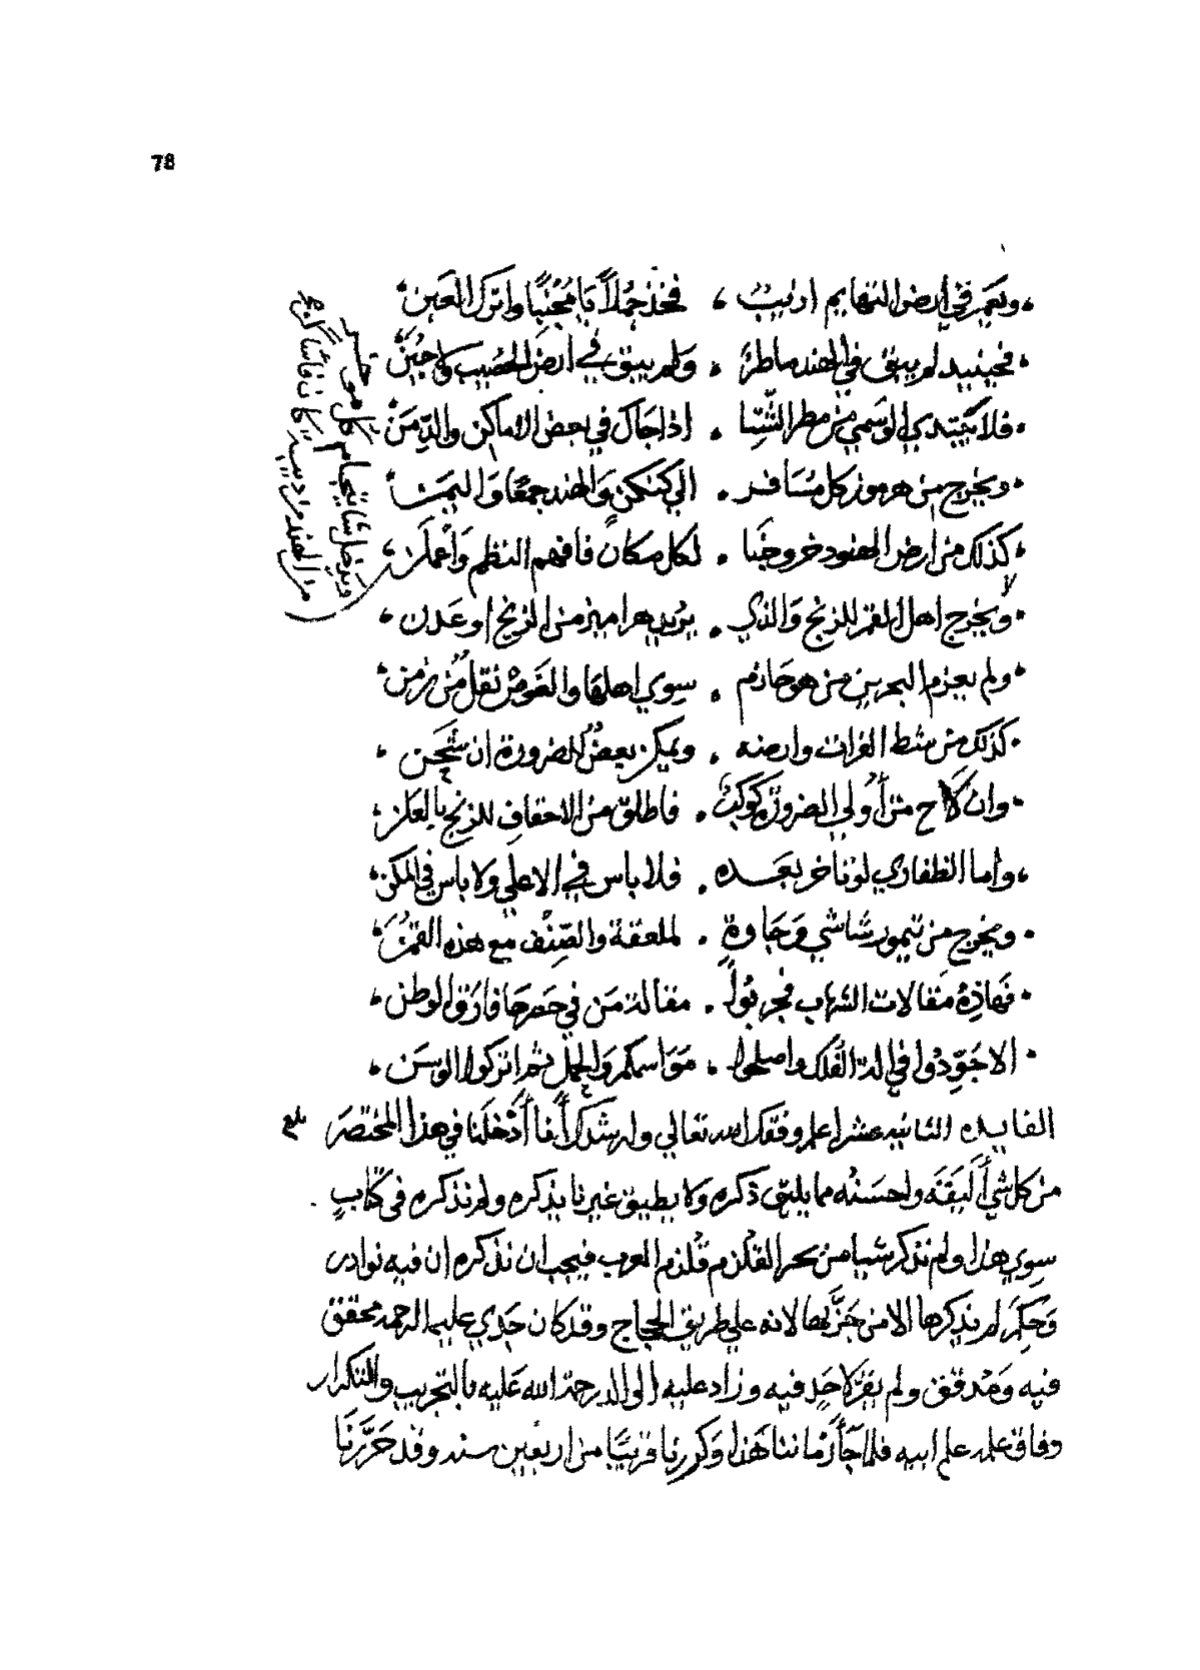 78
ونعمر في أرض التهايم ازيب ، فخذ جملاً يا مجنبًا واترك العين
فحينيد لم يبق في الهند ماطر . ولم يبق في ارض الحصيب
فلا يبتدي الوسمي من مطر الشتا . اذا جاك في بعض الاماكن والدمن
ويخرج من هرموز كل مسافر . الي كنكن والهند جمعًا واليمن
كذلك من ارض الهنود خروجنا . لكل مكان فافهم النظم واعلمن
ويخرج اهل القمر للزنج والذي . يريد هراميز من الزنج او عدن
ولم يعزم البحرين من هو حازم . سوي اهلها والغوص نقل من زمن
كذلك من شط الفرات وارضه . ويمكن بعض الضرورة ان شحن
وان لاح من أولي الضرورة كوكب . فاطلق من الاحقاف للزنج بالعلن
واما الظفاري لو تاخر بعده . فلا باس في الاعلي ولا باس في المكن
ويخرج من تيمور شاشي وجاوة . لملعقة والصنف مع هذه القمن
فهاذه مقالات الشهاب مجربٌ . مقالة من في حصرها فارق الوطن
الا جودوا في الة الفلك واصلحوا . مواسمكم والجمل ثم اتركوا الوسن
الفايده الثانيه عشر اعلم وفقك الله تعالي وارشدك أنا أدخلنا في هذا المختصر
بلغ
من كل شيأ أليقه واحسنه مما يليق ذكره ولا يطيق غيرنا يذكره ولم نذكره في كتاب
سوي هذا ولم نذكر شيا من بحر القلزم قلزم العرب فيجب ان نذكره ان فيه نوادر
وحكم لم يذكرها الا من جربها لانه علي طريق الحجاج وقد كان جدي عليه الرحمه محقق
فيه ومدقق ولم يقر لاحد فيه وزاد عليه الوالد رحمة الله عليه بالتجريب والتكرار
وفاق علمه علم ابيه فلما جأ زماننا هذا وكررنا قريبًا من اربعين سنه وقد حررنا